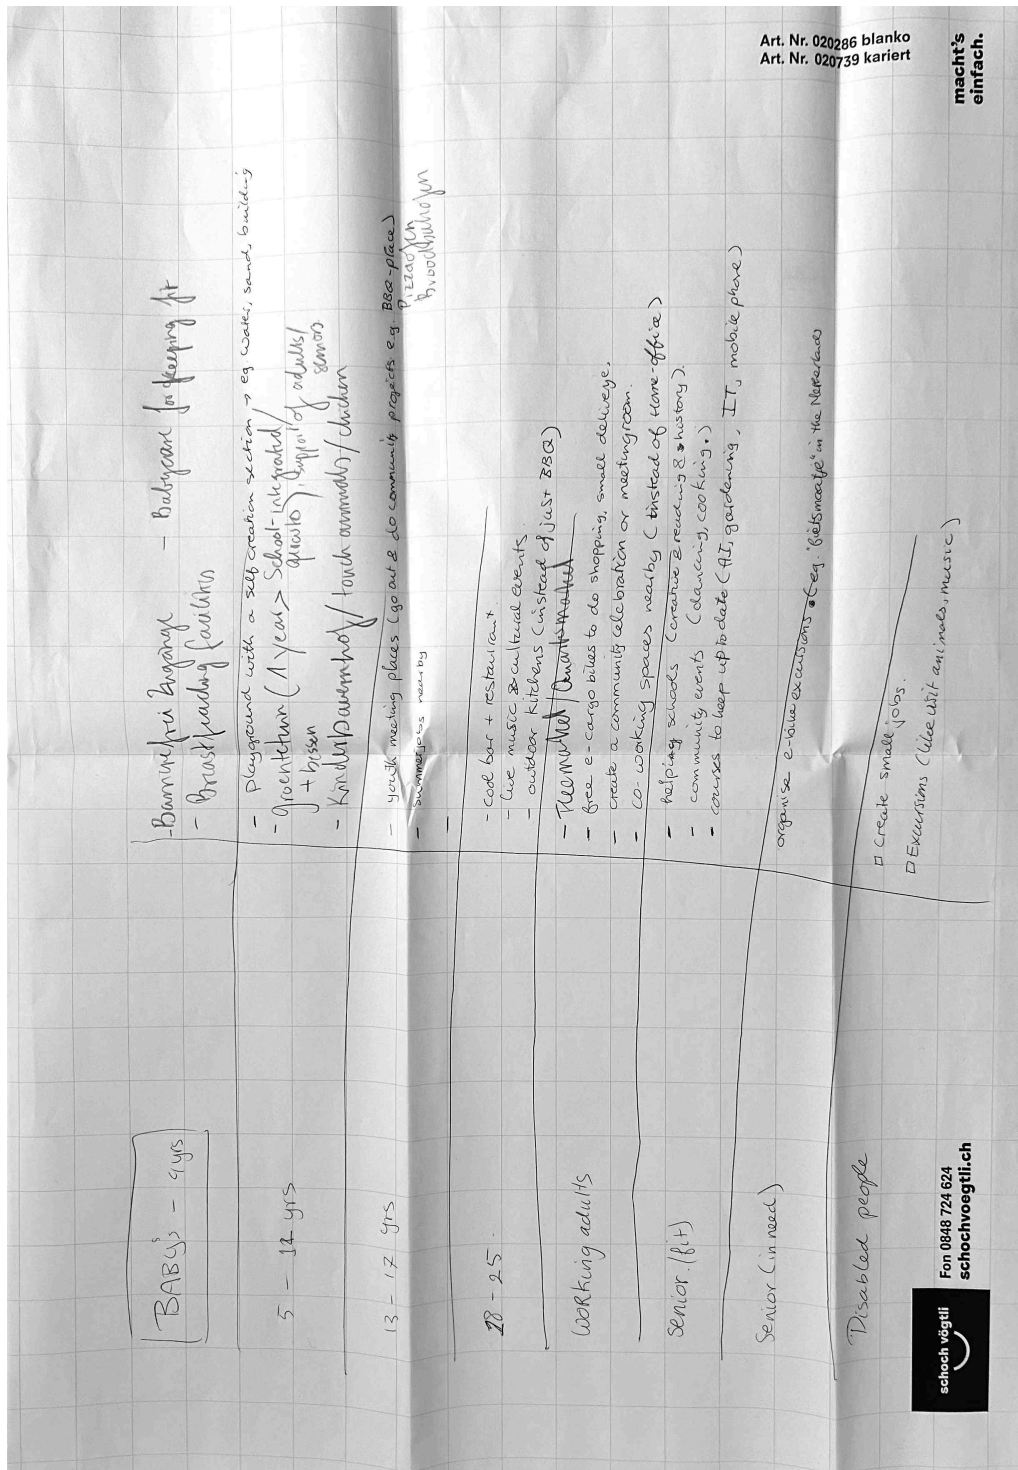 BABy's - 4 yrs
- Barrierefrei Eingänge - Babycare for keeping fit
- Breastfeeding facilities
5 - 12 yrs
- playground with a self creation section → eg water, sand, building
- groenteturn (1 year > School-integrated/
+ bessen quarter), support of adults/
seniors
- Kinderbauernhof / touch animals / chicken
13 - 17 yrs
- youth meeting places (go out & do community projects e.g. BBQ-place)
Pizzaofen
- summerjobs nearby
-
18 - 25.
- cool bar + restaurant
- live music & cultural events
- outdoor kitchens (instead of just BBQ)
WORKing adults
- free e-cargo bikes to do shopping, small delivery.
- create a community celebration or meetingroom.
- co-working spaces nearby (instead of Home-office)
Senior (fit)
- helping schools (creative & reading & history).
- community events (dancing, cooking.)
- courses to keep up to date (AI, gardening, IT, mobile phone)
Senior (in need)
organise e-bike excursions (eg. "fietsmaatje" in the Netherlands
Disabled people
□ Create small jobs.
□ Excursions (like visit animals, music)
schoch vögtli
Fon 0848 724 624
schochvoegtli.ch
Art. Nr. 020286 blanko
Art. Nr. 020739 kariert
macht's
einfach.